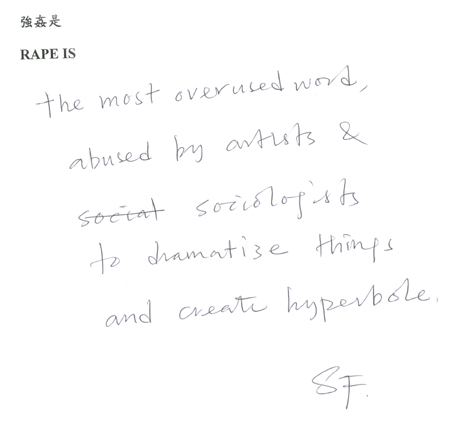 強姦是
RAPE IS
the most overused word,
abused by artists &
social sociologists
to dramatize things
and create hyperbole.
SF.